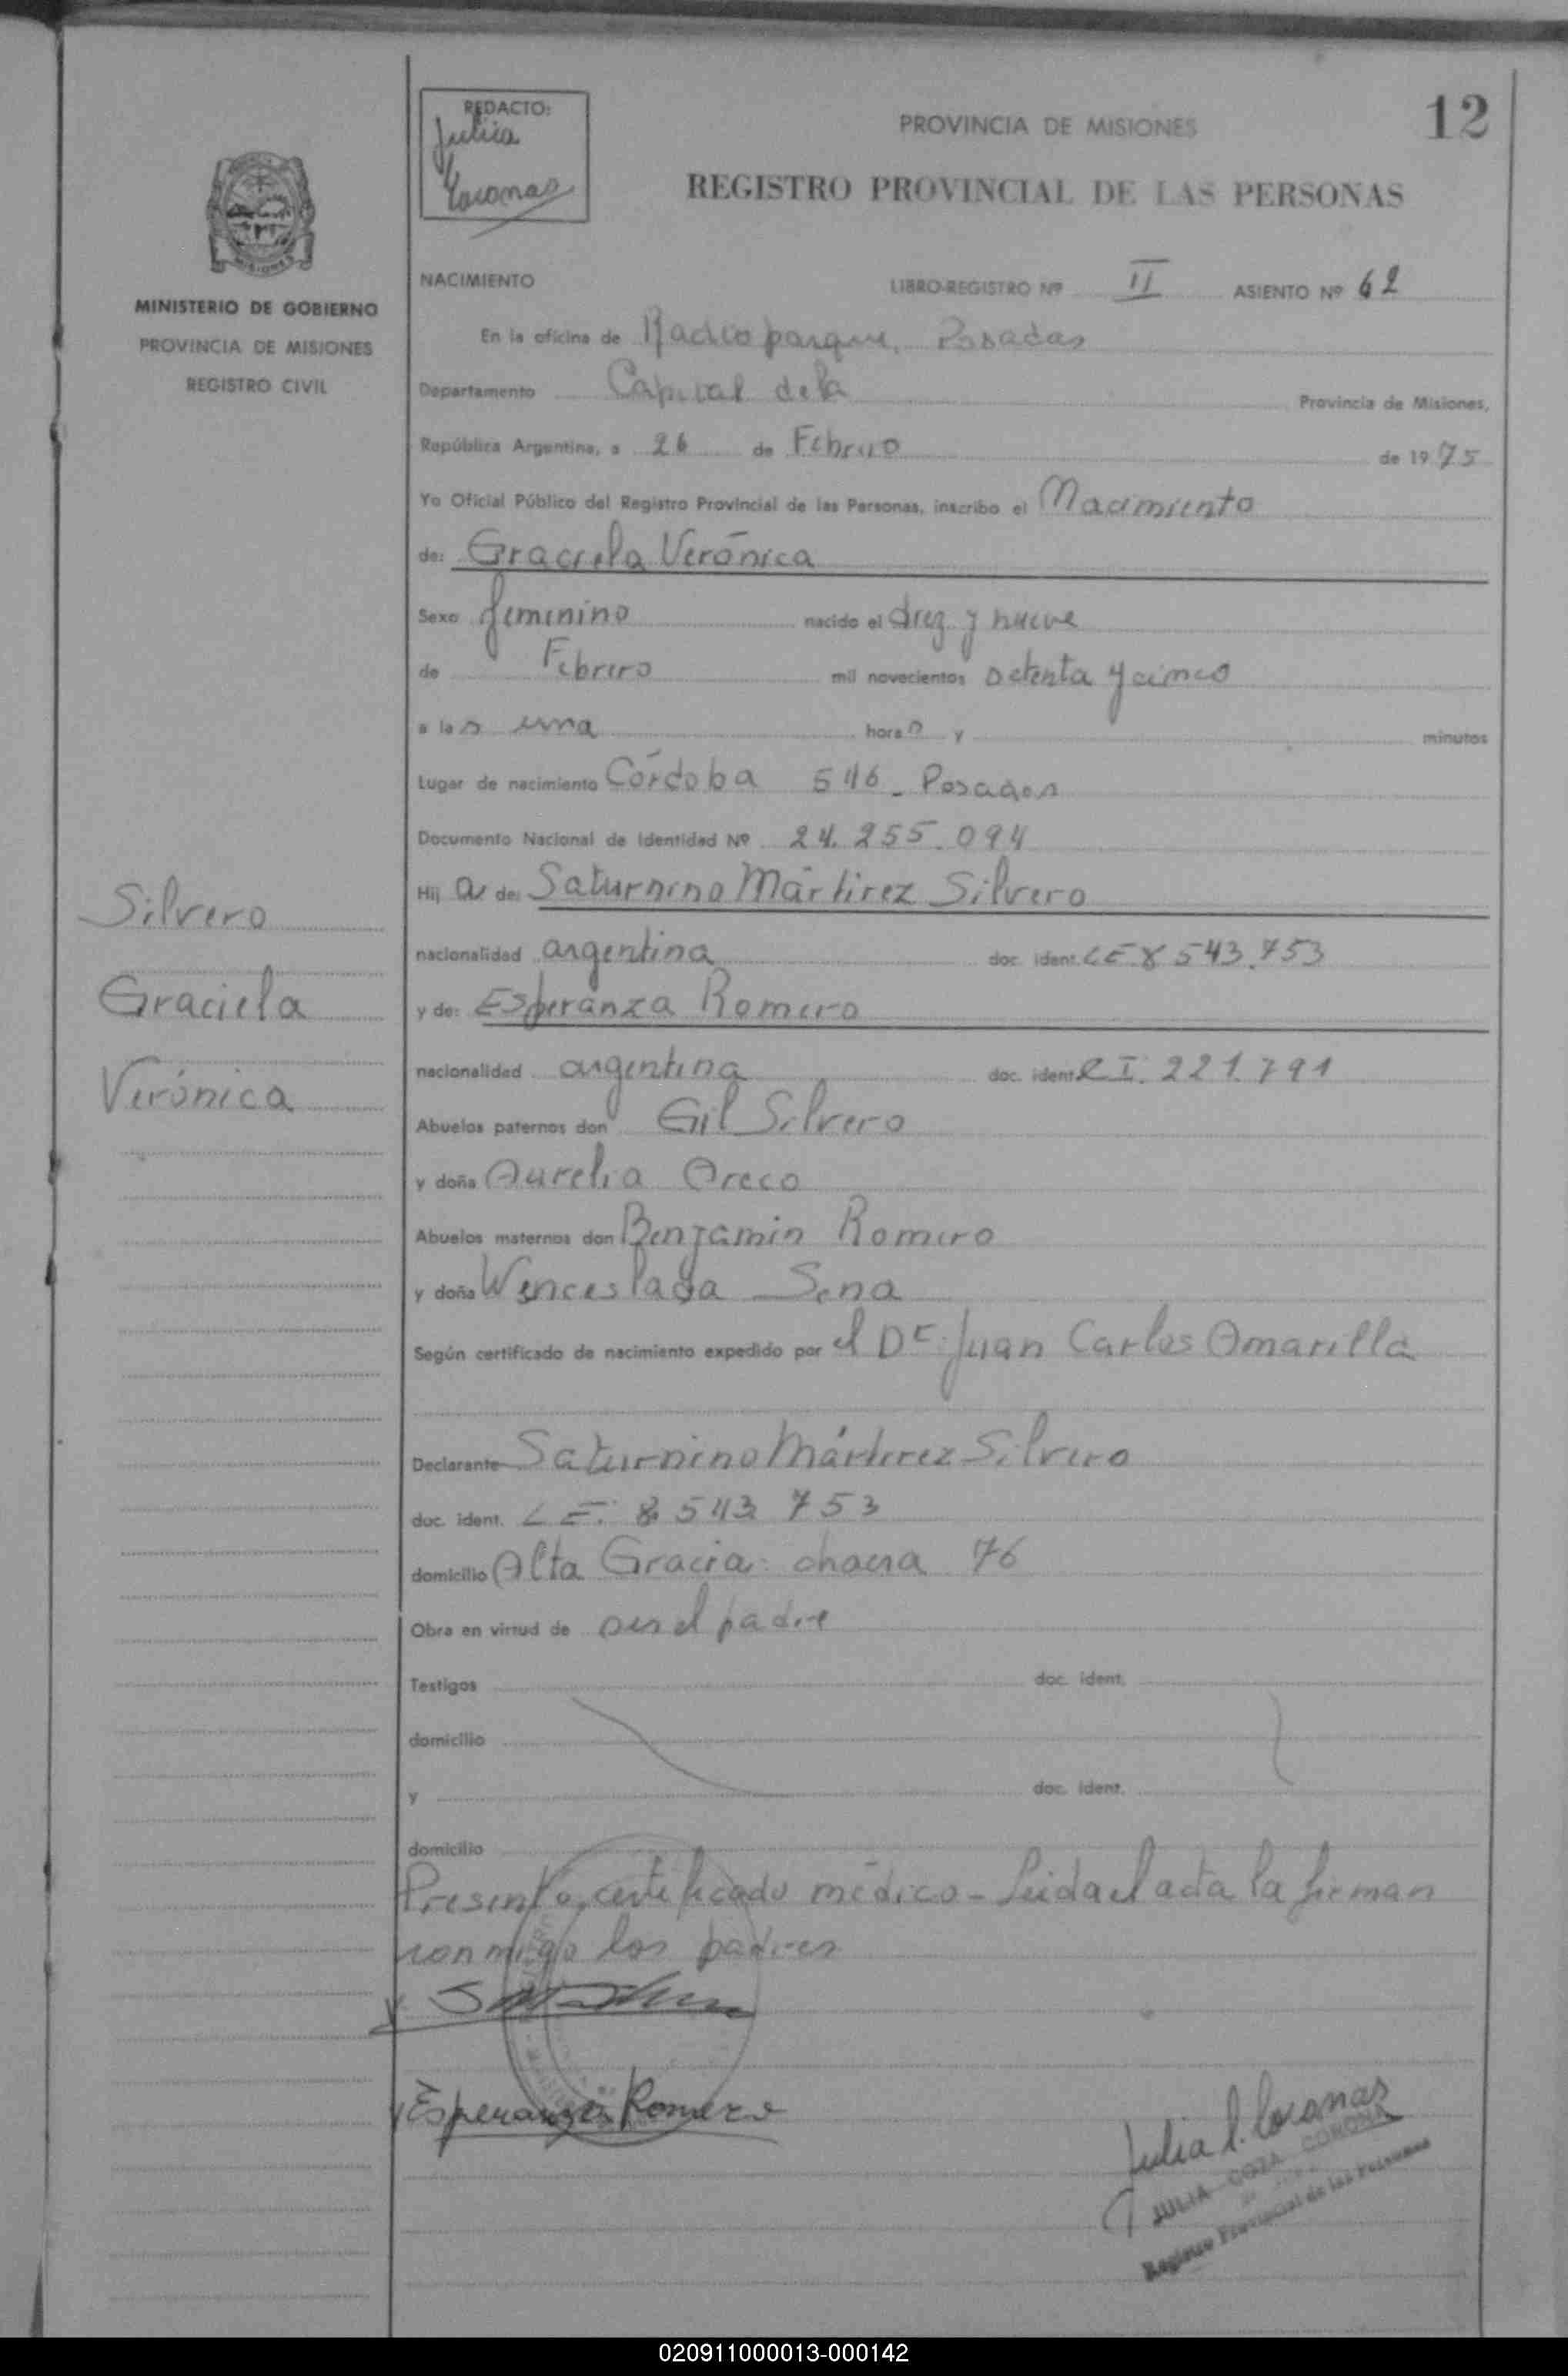 12
REDACTO:
Julia
Coronas
PROVINCIA DE MISIONES
REGISTRO PROVINCIAL DE LAS PERSONAS
MISIONES
MINISTERIO DE GOBIERNO
PROVINCIA DE MISIONES
REGISTRO CIVIL
NACIMIENTO LIBRO-REGISTRO Nº II ASIENTO Nº 62
En la oficina de Radioparque. Posadas
Departamento Capital de la Provincia de Misiones,
República Argentina, a 26 de Febrero de 1975
Yo Oficial Público del Registro Provincial de las Personas, inscribo el Nacimiento
de: Graciela Verónica
Sexo femenino nacido el diez y nueve
de Febrero mil novecientos setenta y cinco
a las una horas y minutos
Lugar de nacimiento Córdoba 546 - Posadas
Documento Nacional de Identidad Nº 24.255.094
Hija de: Saturnino Mártirez Silvero
nacionalidad argentina doc. ident. LE 8 543.753
y de: Esperanza Romero
nacionalidad argentina doc. ident. C I. 221.791
Abuelos paternos don Gil Silvero
y doña Aurelia
Abuelos maternos don Benjamin Romero
y doña Wenceslada Sena
Según certificado de nacimiento expedido por el Dr. Juan Carlos Amarilla
Declarante Saturnino Mártirez Silvero
doc. ident. LE. 8.543 753
domicilio Alta Gracia: chacra 76
Obra en virtud de ser el padre
Testigos doc. ident.
domicilio
y doc. ident.
domicilio
Presentó certificado médico - Leida el acta la firman
conmigo los padres
Esperanza Romero
Julia C. Coronas
JULIA CORONA
Registro Provincial de las Personas
Silvero
Graciela
Verónica
020911000013-000142